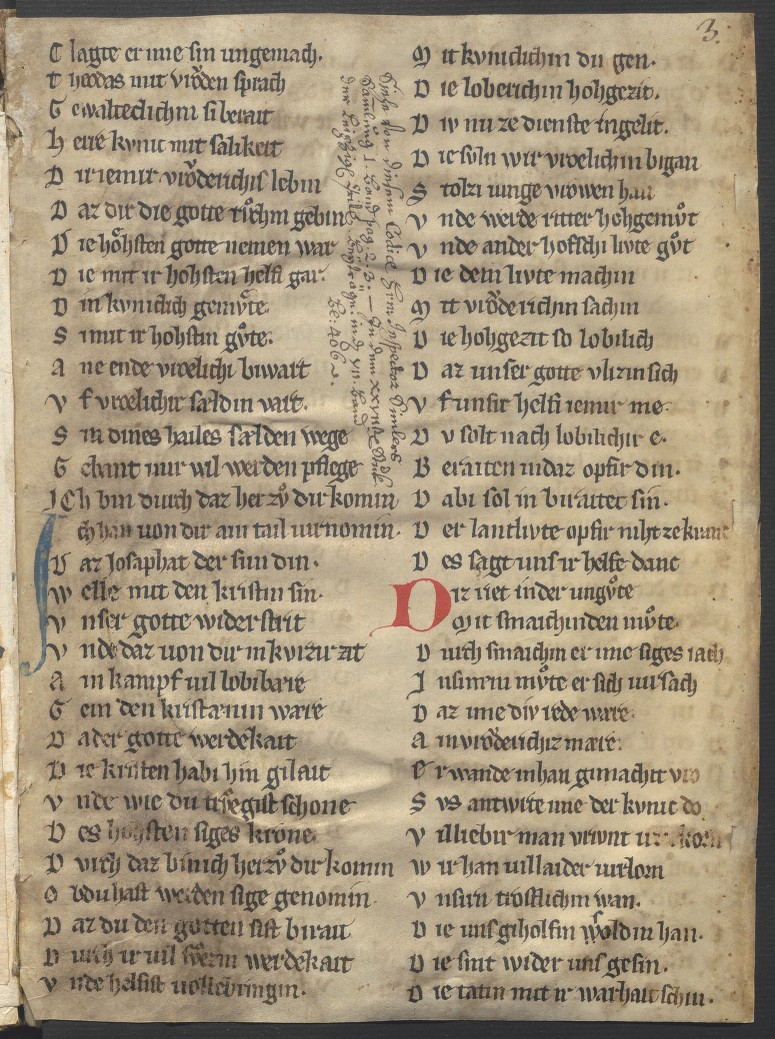 3.
C lagte er ime sin ungemach.
T heodas mit vroͤden sprach
G ewalteclichin si berait
H erre kvnic mit salikeit
D ir iemir vroͤderichis lebin
D az dir die gotte rvͦchin gebin
D ie hoͤhsten gotte nemen war
D ie mit ir hohsten helfi gar.
D in kvniclich gemvͤte.
S i mit ir hohstin gvͤte.
A ne ende vroelichi biwart
V f vroelichir sældin vart.
S in dines hailes sælden wege
G ebant mir wil werden pflege
I Ch bin durch daz her zvͦ dir komin
ch han von dir ain tail virnomin.
D az Josaphat der sun din.
W elle mit den kristin sin.
V nser gotte widerstrit
V nde daz von dir in kvrzir zit
A in kampf vil lobibare
G ein den kristanin ware
D a der gotte werdekait
D ie kristen habi hin gilait
V nde wie du
D es hohsten siges krone.
D vrch daz bin ich her zvͦ dir komin
O b du hast werden sige genomin.
D az du den gotten sist birait
D urch ir vil werdekait
V nde helfist vollebringin.
M it kvniclichin din gen.
D ie loberichin hohgezit.
D iv nu ze dienste in gelit.
D ie svln wir vroelichin bigan
S tolzi iunge vrowen han
V nde werde ritter hohgemvͦt
V nde ander hofschi livte gvͦt
D ie dem livte machin
M it vroͤderichin sachin
D ie hohgezit so lobilich
D az unser gotte vlizin sich
V f unsir helfi iemir me.
D v solt nach lobilichir e.
B eraiten in daz opfir din.
D abi sol in biraitet sin.
D er lantlivte opfir niht ze kranc
D es sagt uns ir helfe danc
D iz riet in der ungvͤte
Mit smaichinden mvͤte.
D urch smaichin er ime siges iach
I n sinim mvͤte er sich virsach
D az ime div rede ware.
A in vroͤderichiz mære.
E r wande in han gimachit vro
S vs antwrte ime der kvnic do
V il liebir man vrivnt
W ir han vil laider virlorn
V nsirn trostlichin wan.
D ie uns giholfin soldin han.
D ie sint wider uns gesin.
D ie tatin mit ir warhait schin.
Siehe von diesem Codice Hrn. Inspector Simlers
Samlung I. Band pag. 2. 3. — In dem XXVIIten